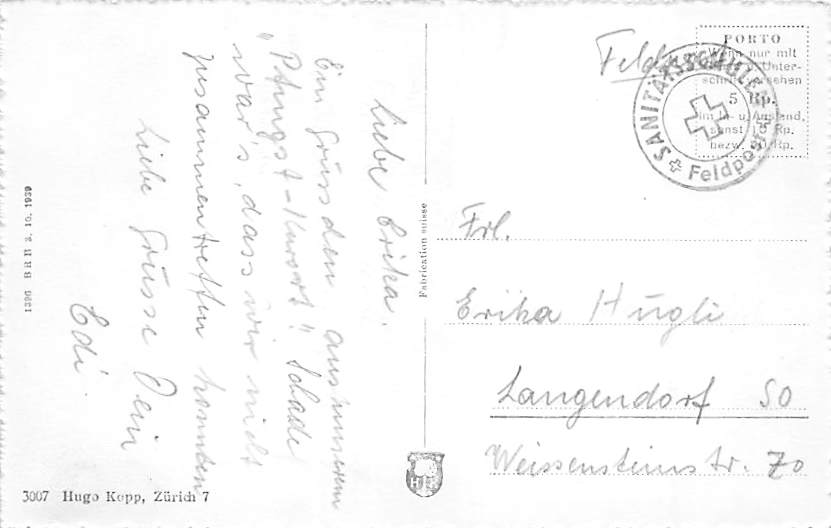 Liebe Erika.
Ein Grüsschen aus unserem
"Pfingst-Kurort". Schade
war's, dass wir nicht
zusammentreffen konnten.
Liebe Grüsse Dein
Edi.
1896 BRB 3. 10. 1939
3007 Hugo Kopp, Zürich 7
Fabrication suisse
H K
Feldpost
PORTO
Wenn nur mit
Unter-
schrift versehen
5 Rp.
im In- u. Ausland,
sonst 10 Rp.
bezw. 20 Rp.
SANITÄTSSCHULEN
Feldpost
Frl.
Erika Hugli
Langendorf SO
Weissensteinstr. 70